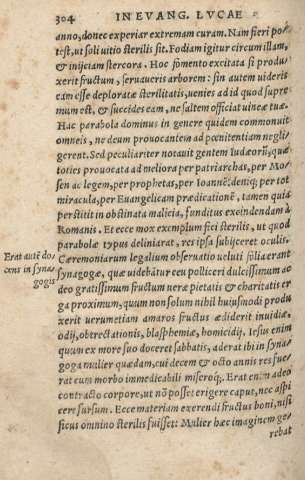 304 IN EVANG. LVCAE
anno, donec experiar extremam curam. Nam fieri po
test, ut soli uitio sterilis sit. Fodiam igitur circum illam,
& inijciam stercora. Hoc fomento excitata si produ
xerit fructum, seruaueris arborem: sin autem uideris
eam esse deploratæ sterilitatis, uenies ad id quod supre
mum est, & succides eam, ne saltem officiat uineæ tuæ.
Hac parabola dominus in genere quidem commonuit
omneis, ne deum prouocantem ad pœnitentiam negli
gerent. Sed peculiariter notauit gentem Iudæorũ, quæ
toties prouocata ad meliora per patriarchas, per Mo
sen ac legem, per prophetas, per Ioannẽ: deniq; per tot
miracula, per Euangelicam prædicationẽ, tamen quia
perstitit in obstinata malicia, funditus exeindendam à
Romanis. Et ecce mox exemplum fici sterilis, ut quod
parabolæ typus deliniarat, res ipsa subijceret oculis.
Erat autẽ do
cens in syna
gogis
Cæremoniarum legalium obseruatio ueluti folia erant
synagogæ, quæ uidebãtur ceu polliceri dulcissimum ac
deo gratissimum fructum ueræ pietatis & charitatis er
ga proximum, quum non solum nihil huiusmodi produ
xerit uerumetiam amaros fructus ædiderit inuidiæ,
odij, obtrectationis, blasphemiæ, homicidij. Iesus enim
quum ex more suo doceret sabbatis, aderat ibi in syna
goga mulier quædam, cui decem & octo annis res fue
rat cum morbo immedicabili miseroq;. Erat enim adeo
contracto corpore, ut nõ posset erigere caput, nec aspi
cere sursum. Ecce materiam exerendi fructus boni, nisi
ficus omnino sterilis fuisset: Mulier hæc imaginem ge
rebat